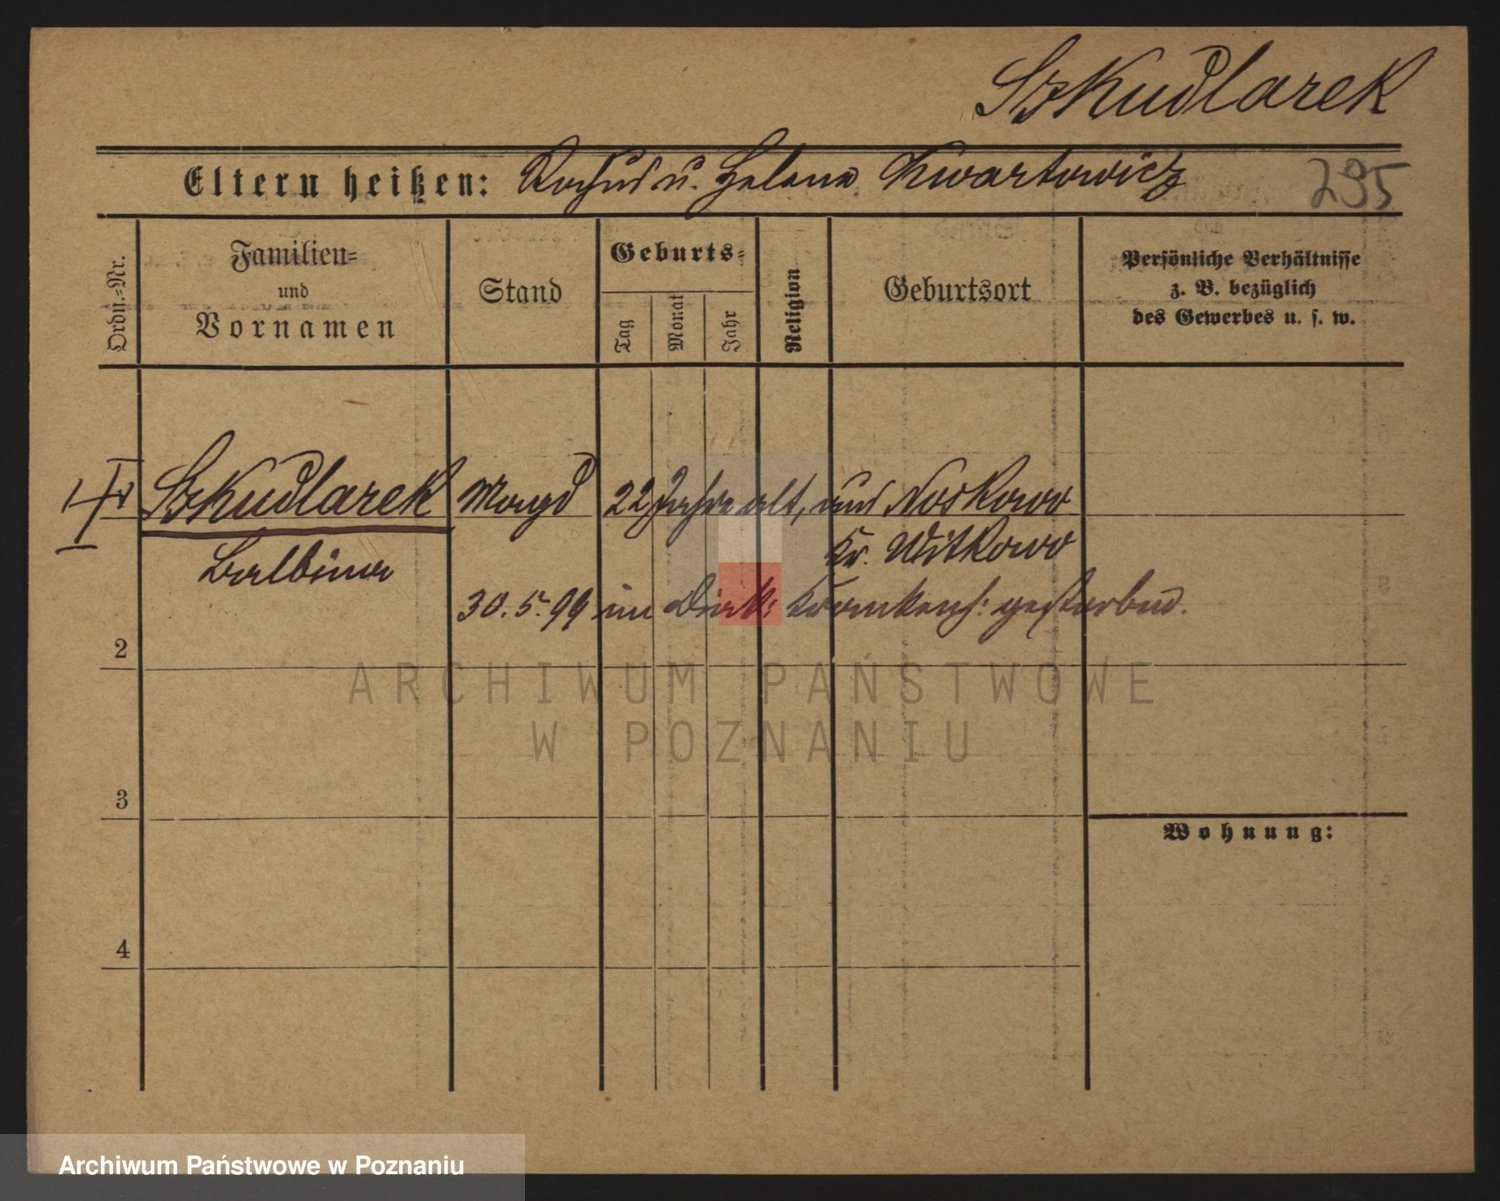 Szkudlarek
Eltern heißen: Rochus u. Helena Kwartowicz
295
Ordn.=Nr.
Familien=
und
Vornamen
Stand
Geburts=
Tag
Monat
Jahr
Religion
Geburtsort
Persönliche Verhältnisse
z. B. bezüglich
des Gewerbes u. s. w.
Szkudlarek Magd 22 Jahre alt, aus Noskowo
Kr. Witkowo
Balbina
30.5.99 im Diak: Krankenh: gestorben.
2
ARCHIWUM PAŃSTWOWE
W POZNANIU
3
Wohnung:
4
Archiwum Państwowe w Poznaniu